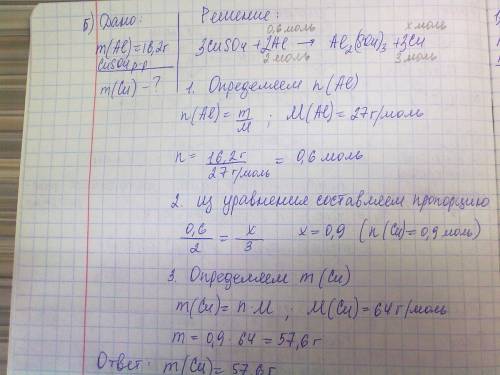 Б) Дано:
m(Al)=16,2г
CuSO4 р-р
m(Cu) - ?
Решение:
0,6 моль x моль
3CuSO4 + 2Al → Al2(SO4)3 + 3Cu
2 моль 3 моль
1. Определяем n(Al)
n(Al) = m/M ; M(Al) = 27 г/моль
n = 16,2г / 27 г/моль = 0,6 моль
2. из уравнения составляем пропорцию
0,6/2 = x/3 x = 0,9 (n(Cu) = 0,9 моль)
3. Определяем m(Cu)
m(Cu) = n · M ; M(Cu) = 64 г/моль
m = 0,9 · 64 = 57,6 г
Ответ: m(Cu) = 57,6 г